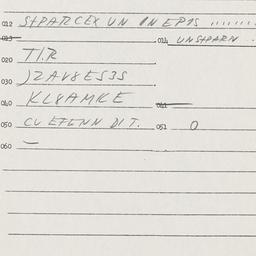 012 STPARCEX UN IN EP1S
013 014 UNSTPARN
020 TIR
030 JZAV8ES3S
040 KL8AMKE 041
050 CU EFENN DIT. 051 0
060 —